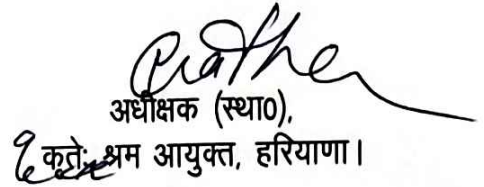 अधीक्षक (स्था0),
कृते: श्रम आयुक्त, हरियाणा।